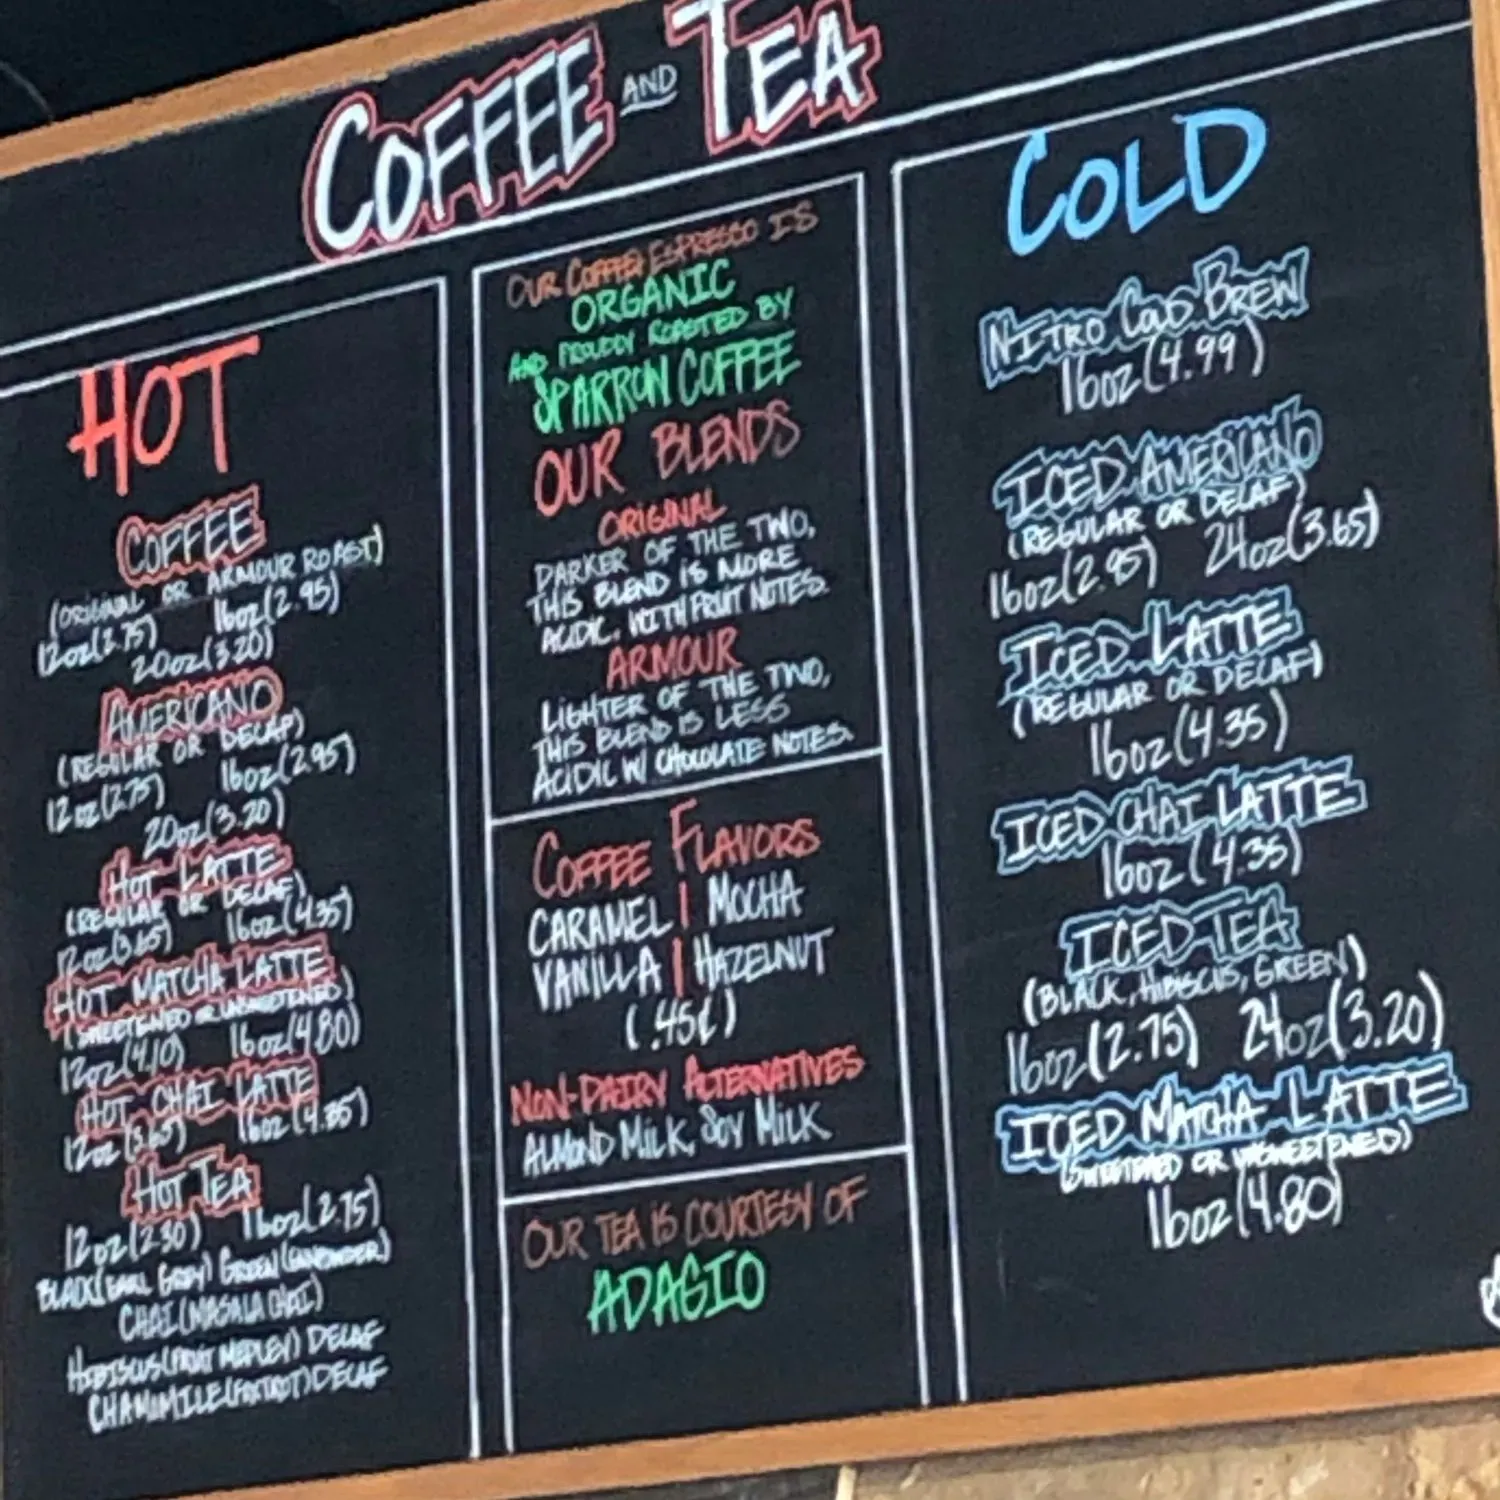 COFFEE AND TEA
HOT
COFFEE
(ORIGINAL OR ARMOUR ROAST)
12oz(2.75) 16oz(2.95)
20oz(3.20)
AMERICANO
(REGULAR OR DECAF)
12oz(2.75) 16oz(2.95)
20oz(3.20)
HOT LATTE
(REGULAR OR DECAF)
12oz(3.65) 16oz(4.35)
HOT MATCHA LATTE
(SWEETENED OR UNSWEETENED)
12oz(4.10) 16oz(4.80)
HOT CHAI LATTE
12oz(3.65) 16oz(4.35)
HOT TEA
12oz(2.30) 16oz(2.75)
BLACK(EARL GREY) GREEN(GUNPOWDER)
CHAI(MASALA CHAI)
HIBISCUS(FRUIT MEDLEY) DECAF
CHAMOMILE(FOXTROT) DECAF
OUR COFFEE/ESPRESSO IS
ORGANIC
AND PROUDLY ROASTED BY
SPARROW COFFEE
OUR BLENDS
ORIGINAL
DARKER OF THE TWO,
THIS BLEND IS MORE
ACIDIC, WITH FRUIT NOTES.
ARMOUR
LIGHTER OF THE TWO,
THIS BLEND IS LESS
ACIDIC W/ CHOCOLATE NOTES.
COFFEE FLAVORS
CARAMEL | MOCHA
VANILLA | HAZELNUT
(.45¢)
NON-DAIRY ALTERNATIVES
ALMOND MILK, SOY MILK
OUR TEA IS COURTESY OF
ADAGIO
COLD
NITRO COLD BREW
16oz(4.99)
ICED AMERICANO
(REGULAR OR DECAF)
16oz(2.95) 24oz(3.65)
ICED LATTE
(REGULAR OR DECAF)
16oz(4.35)
ICED CHAI LATTE
16oz(4.35)
ICED TEA
(BLACK, HIBISCUS, GREEN)
16oz(2.75) 24oz(3.20)
ICED MATCHA LATTE
(SWEETENED OR UNSWEETENED)
16oz(4.80)